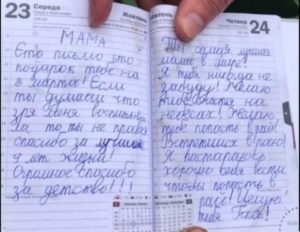 23 Середа
Четвер 24
МАМА
Это письмо это
подарок тебе на
8 марта! Если
ты думаеш что
зря меня воспитывала
то ты не права
спасибо за лучшие
9 лет жизни!
Огромное спасибо
за детство!!!
Ты самая лучшая
мама в мире!
Я тебя никогда не
забуду! Желаю
на
небесах! Желаю
тебе попасть в рай!
Встретимся в раю!
Я постараюсь
хорошо себя вести
чтобы попасть в
рай! Целую
тебя